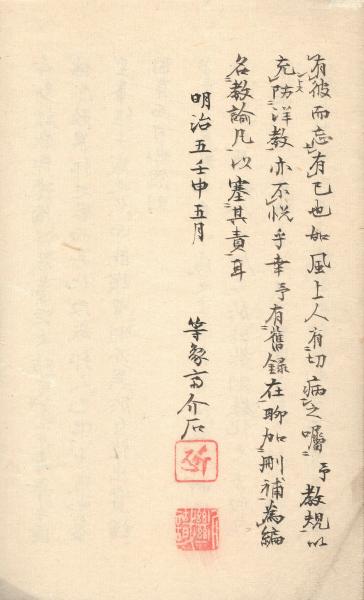 有彼而忘有己也如風上人有切病之囑予教規以
充防洋教亦不悦乎幸予有舊録在聊加刪補為編
名教諭凡以塞其責耳
明治五壬申五月
等象斎介石